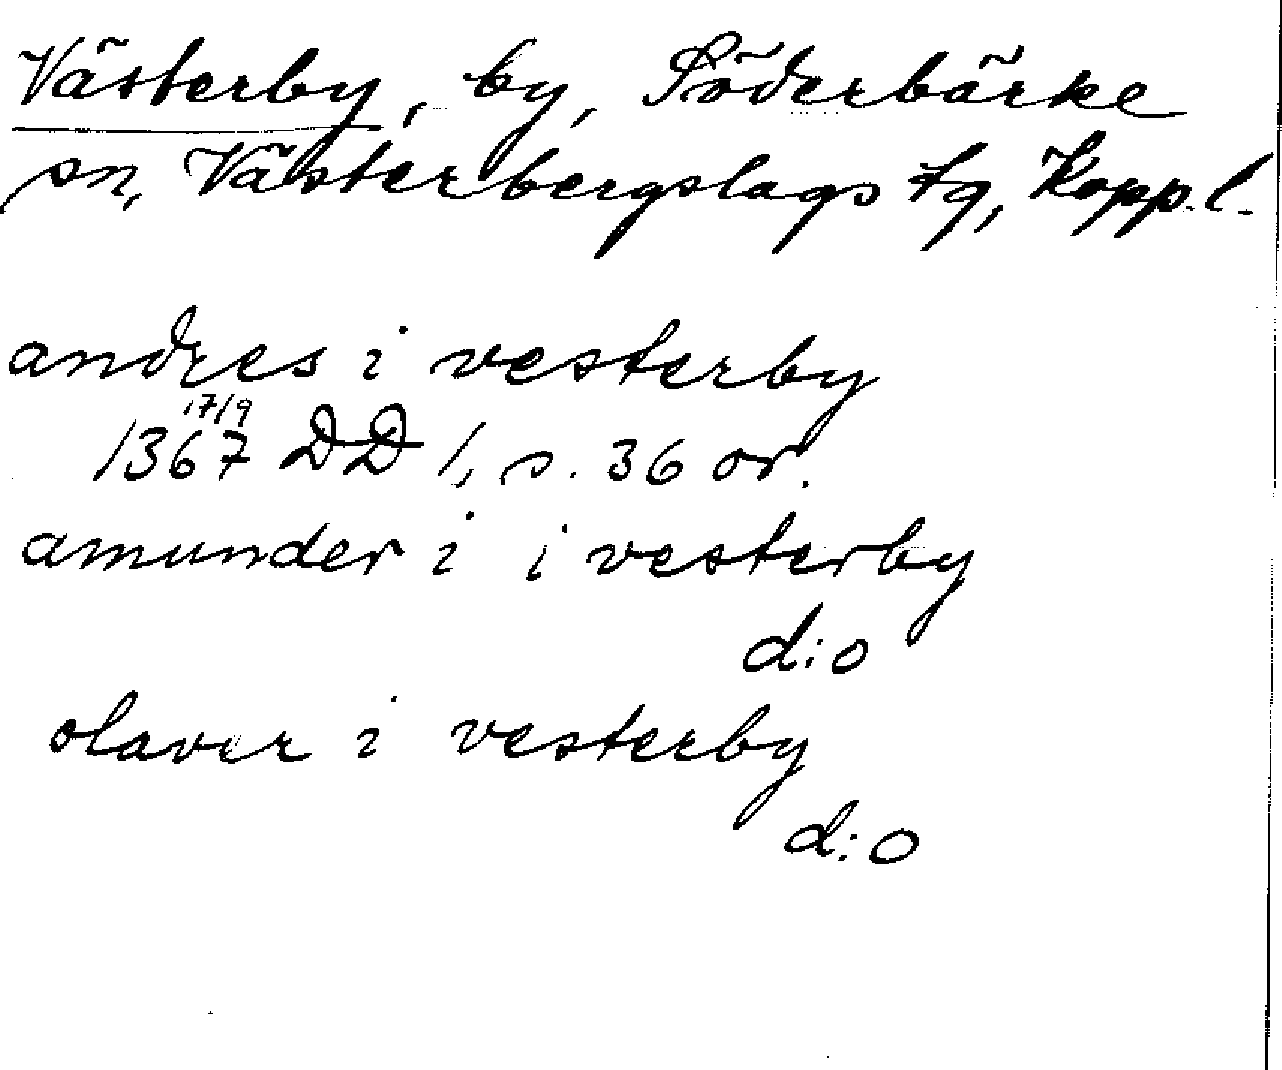 Västerby, by, Söderbärke
sn, Västerbergslags fg, Kopp.l.
andres i vesterby
17/9
1367 DD 1, s. 36 or.
amunder i i vesterby
d:o
olaver i vesterby
d:o